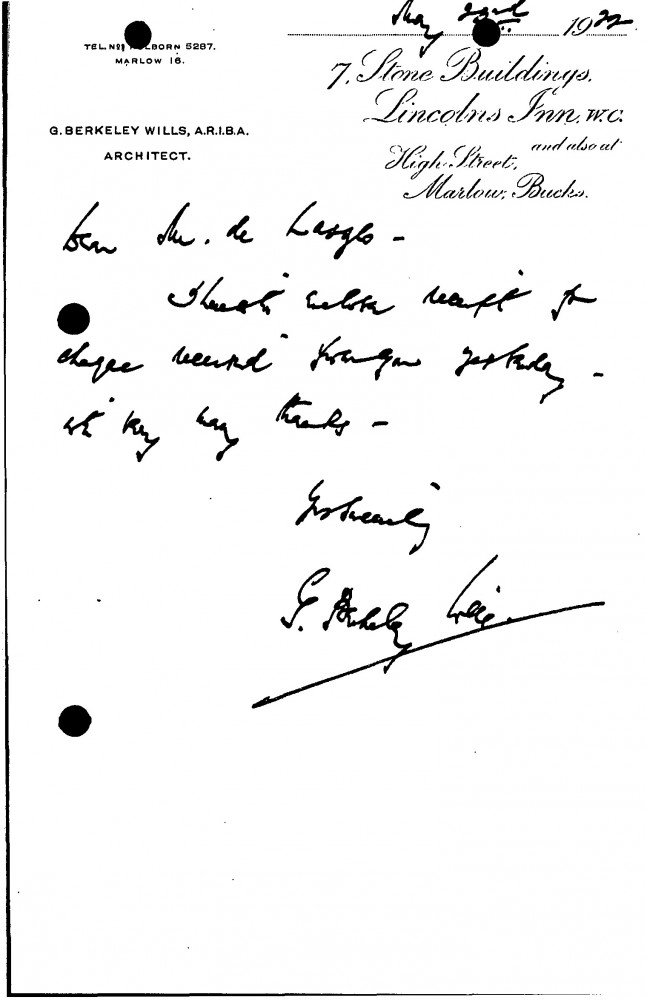 May 22nd 1922
TEL. Nos HOLBORN 5287.
MARLOW 16.
7, Stone Buildings,
Lincolns Inn, W.C.
and also at
High Street,
Marlow, Bucks.
G. BERKELEY WILLS, A.R.I.B.A.
ARCHITECT.
Dear Mr. de Laszlo -
I herewith enclose receipt for
cheque received from you yesterday -
with very many thanks -
Yrs sincerely
G. Berkeley Wills.